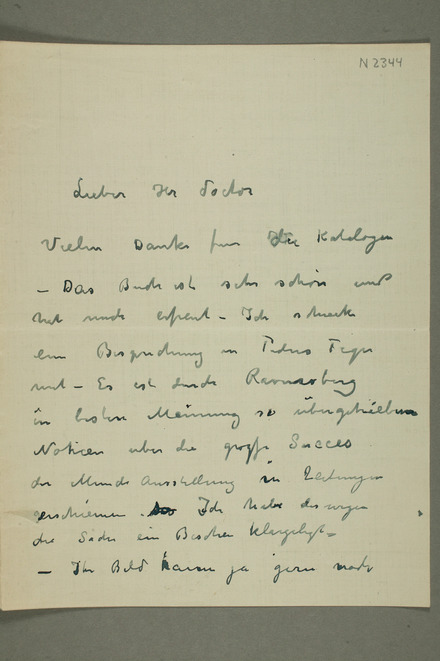 N 2344
Lieber Her Doctor
Vielen Danke fur Ihre Katalogen
– Das Buch ist sehr schön und
hat mich erfreut – Ich schicke
ein Besprechung in Tidens Tegn
mit – Es ist durch Ravensberg
in besten Meinung so übergetriebene
Notizen uber die grosse Succes
der Munch Ausstellung in Zeitungen
erschienen Ich habe deswegen
die Sache ein Bischen klargelegt –
– Ihr Bild kann ja gern noch